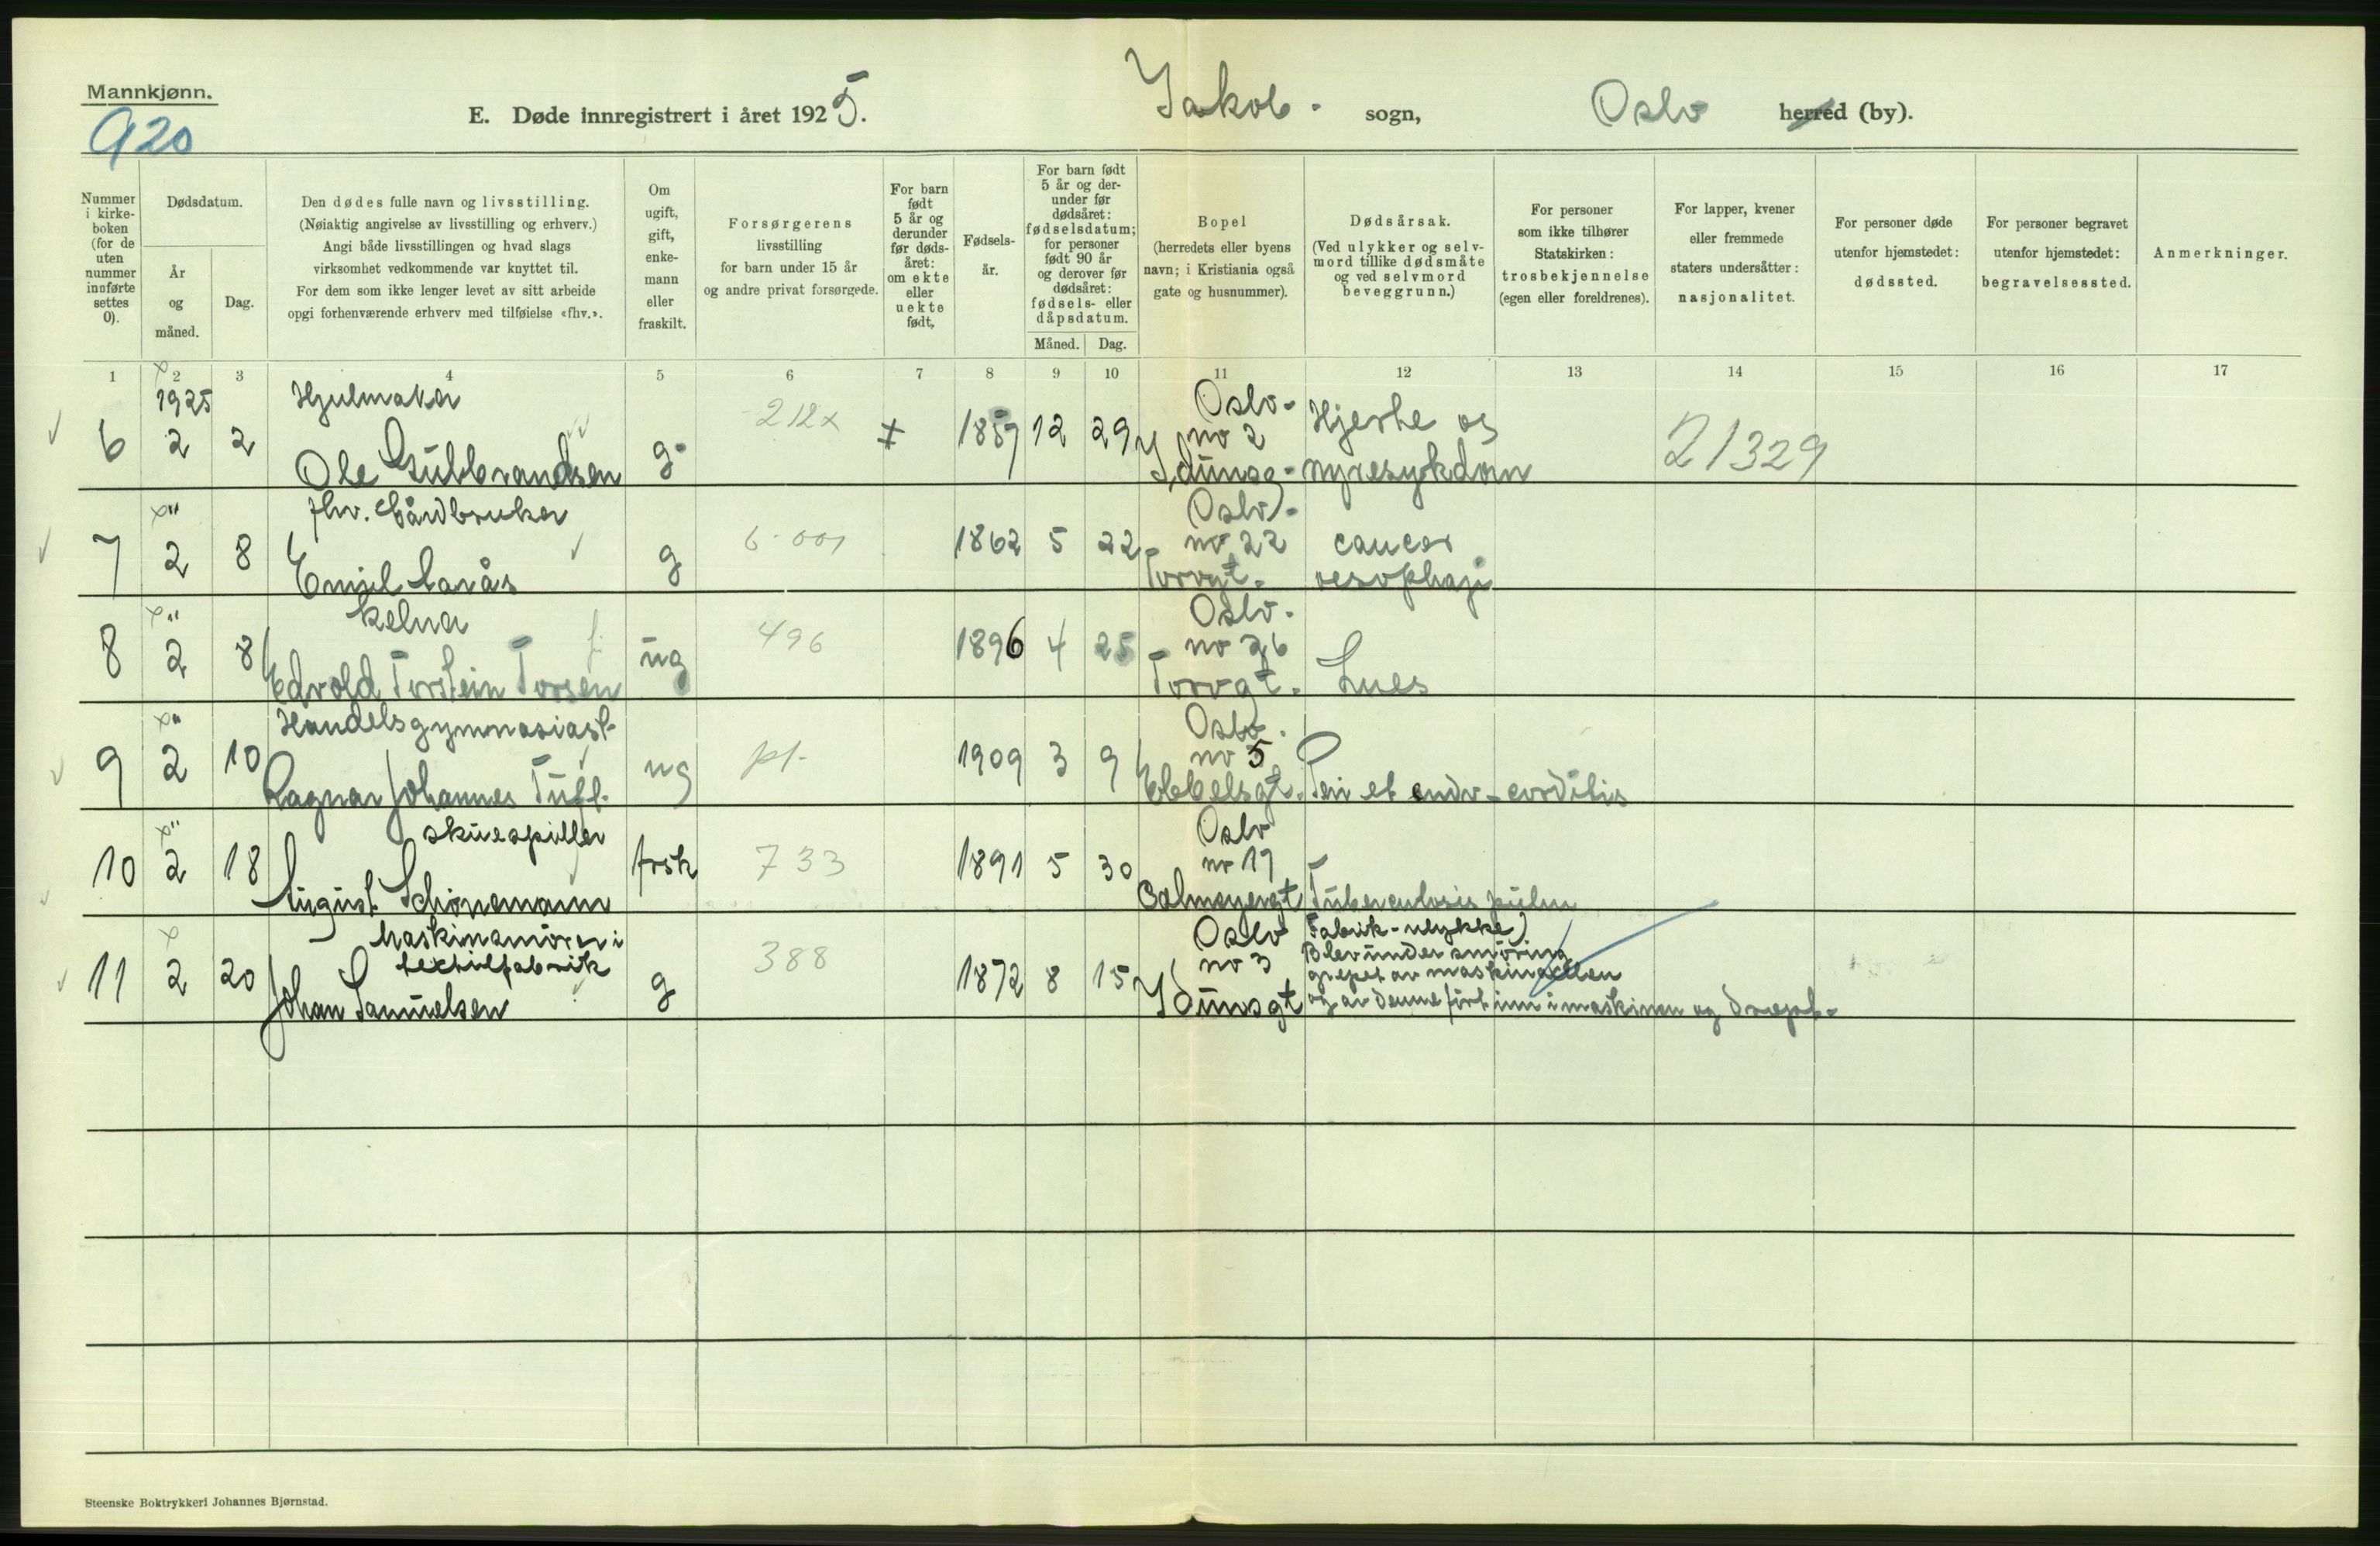 Mannkjønn.
920
E. Døde innregistrert i året 1925.
Jakob. sogn,
Oslo herred (by).
Nummer i kirkeboken (for de uten nummer innførte settes 0).
Dødsdatum.
År og måned.
Dag.
Den dødes fulle navn og livsstilling.
(Nøiaktig angivelse av livsstilling og erhverv.)
Angi både livsstillingen og hvad slags
virksomhet vedkommende var knyttet til.
For dem som ikke lenger levet av sitt arbeide
opgi forhenværende erhverv med tilføielse «fhv.».
Om ugift, gift, enkemann eller fraskilt.
Forsørgerens
livsstilling
for barn under 15 år
og andre privat forsørgede.
For barn født 5 år og derunder før dødsåret: om ekte eller uekte født,
Fødselsår.
For barn født 5 år og derunder før dødsåret: fødselsdatum; for personer født 90 år og derover før dødsåret: fødsels- eller dåpsdatum.
Måned.
Dag.
Bopel
(herredets eller byens
navn; i Kristiania også
gate og husnummer).
Dødsårsak.
(Ved ulykker og selvmord tillike dødsmåte og ved selvmord beveggrunn.)
For personer
som ikke tilhører
Statskirken:
trosbekjennelse
(egen eller foreldrenes).
For lapper, kvener
eller fremmede
staters undersåtter:
nasjonalitet.
For personer døde
utenfor hjemstedet:
dødssted.
For personer begravet
utenfor hjemstedet:
begravelsessted.
Anmerkninger.
1 2 3 4 5 6 7 8 9 10 11 12 13 14 15 16 17
1925 Hjulmaker 212x Oslo. Hjerte og
6 2 2 Ole Gulbrandsen g. 1857 12 29 no 2 Idunsg. nyresykdom 21329
" fhv. Gårdbruker Oslo.
7 2 8 Emil Larås g 6-001 1862 5 22 no 22 Torvgt. cancer oesophagi
" Kelner Oslo.
8 2 8 Edvold Torstein Torsen ug 496 1896 4 25 no 26 Torvgt. Lues
" Handelsgymnasiast. Oslo.
9 2 10 Ragnar Johannes Tuff. ug pt. 1909 3 9 no 5 Ebbelsgt. Peri et endo-corditis
" skuespiller Oslo
10 2 18 August Schönemann frsk 733 1891 5 30 no 17 Calmeyergt Tuberculosis pulm
Maskinsmörer i Oslo Fabrik-ulykke)
textilfabrik no 3 Blev under smöring
11 2 20 Johan Samuelsen g 388 1872 8 15 Idunsgt grepet av maskinakslen
og av denne fört inn i maskinen og drept.
Steenske Boktrykkeri Johannes Bjørnstad.